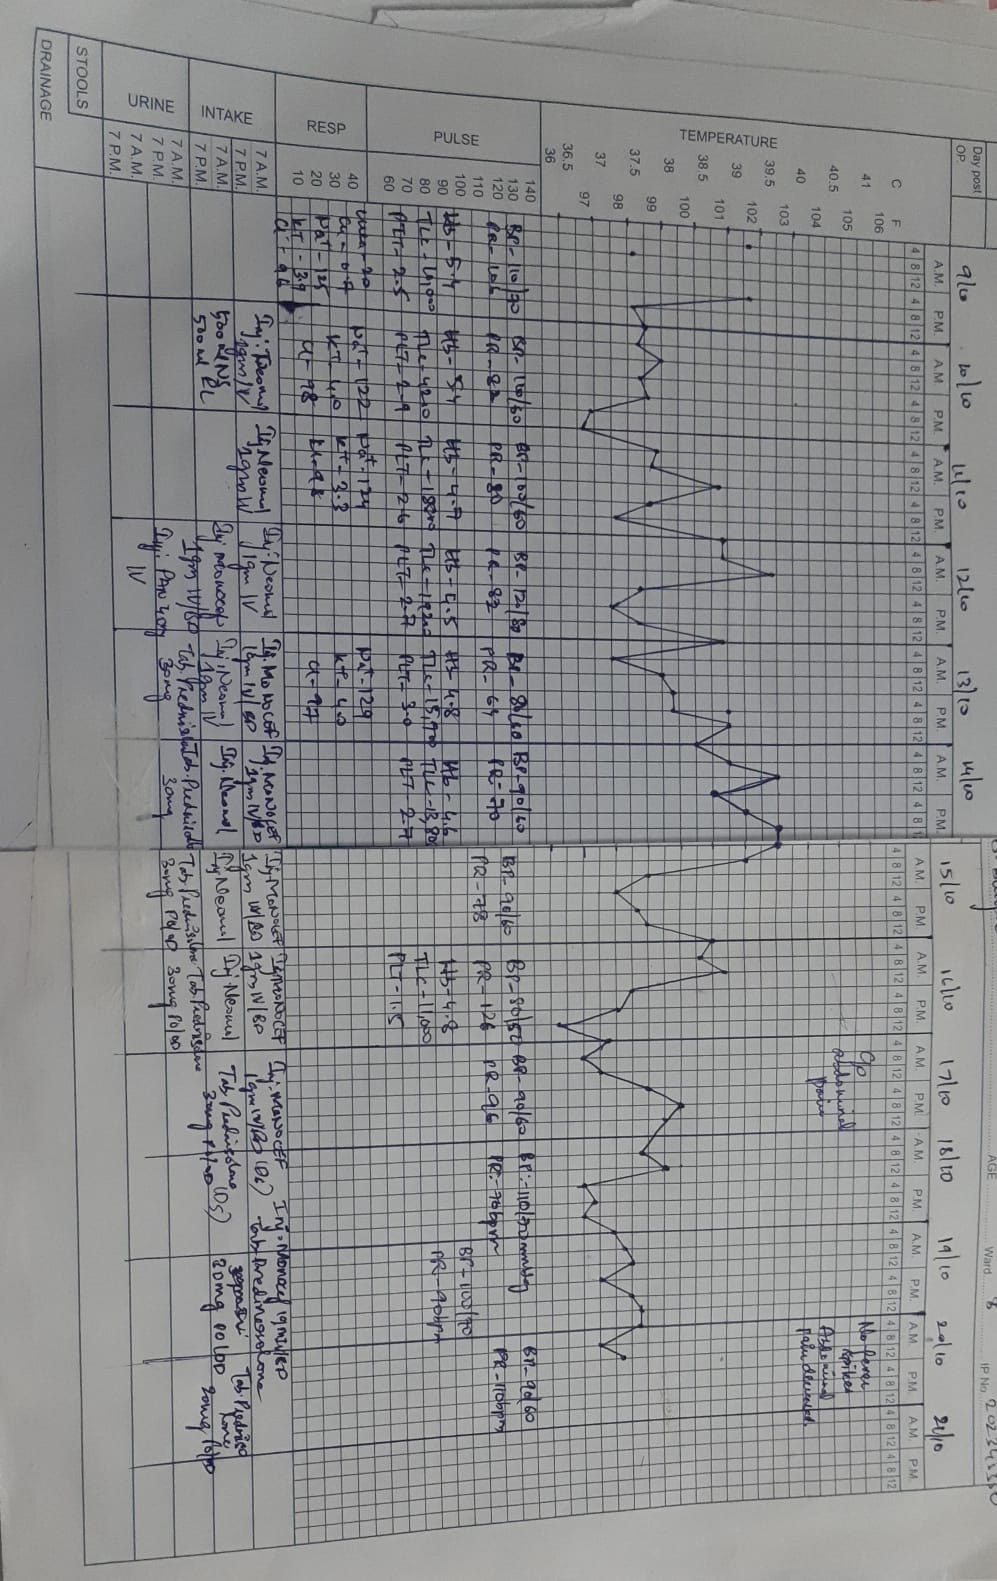 Day post OP
9/10 10/10 11/10 12/10 13/10 14/10 15/10 16/10 17/10 18/10 19/10 20/10 21/10
AGE
Ward 8
IP No.
A.M. P.M. A.M. P.M. A.M. P.M. A.M. P.M. A.M. P.M. A.M. P.M. A.M. P.M. A.M. P.M. A.M. P.M. A.M. P.M. A.M. P.M. A.M. P.M. A.M. P.M.
4 8 12 4 8 12
C F
TEMPERATURE
106
41 105
40.5 104
40 103
39.5 102
39 101
38.5 100
38 99
37.5 98
37 97
36.5
36
c/o
abdominal
pain
No fever
spikes
Abdominal
pain decreased.
PULSE
140
130
120
110
100
90
80
70
60
RESP
40
30
20
10
BP- 110/70
PR- 106
Hb- 5.4
PLT- 2.5
Urea- 20
Cr- 0.7
Na+- 125
K+- 3.9
Cl- 96
BP- 110/60
PR- 82
Hb- 5.4
PLT- 2.9
Na+- 122
K+- 4.0
Cl- 98
BP- 100/60
PR- 80
Hb- 4.7
PLT- 2.6
Na+- 124
K+- 3.3
BP- 120/80
PR- 82
Hb- 4.5
PLT- 2.7
BP- 80/60
PR- 64
Hb- 4.8
PLT- 3.0
Na+- 129
K+- 4.0
Cl- 97
BP- 90/60
PR- 70
Hb- 4.6
PLT- 2.7
BP- 90/60
PR- 78
BP- 80/50
PR- 126
Hb- 4.8
PLT- 1.5
BP- 90/60
PR- 96
BP:- 110/70mmHg
PR:- 76bpm
BP- 100/70
PR- 90bpm
BP- 90/60
PR- 110bpm
INTAKE
7 A.M.
7 P.M.
7 A.M.
7 P.M.
URINE
7 A.M.
7 P.M.
7 A.M.
7 P.M.
STOOLS
DRAINAGE
Inj. Neomol
1gm IV
500ml NS
500ml RL
Inj. Neomol
1gm IV
Inj. Neomol
1gm IV
Inj. Monocef
1gm IV/BD
Inj. PAN 40mg
IV
Inj. Monocef
1gm IV/BD
Inj. Neomol
1gm IV
Tab. Prednisolone
30mg
Inj. MONOCEF
1gm IV/BD
Inj. Neomol
Tab. Prednisolone
30mg
Inj. MONOCEF
1gm IV/BD
Inj. Neomol
Tab. Prednisolone
30mg PO/OD
Inj. MONOCEF
1gm IV/BD
Inj. Neomol
Tab. Prednisolone
30mg PO/OD
Inj. MONOCEF
1gm IV/BD (D6)
Tab. Prednisolone
30mg PO/OD (D5)
Inj. Monocef 1gm IV/BD
Tab. Prednisolone
20mg PO/OD
Tab. Prednisolone
20mg PO/OD